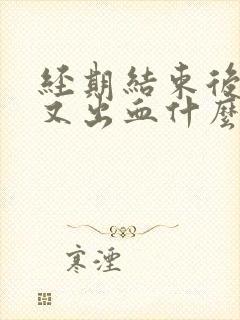 經期結束後
又出血什麼
寒湮